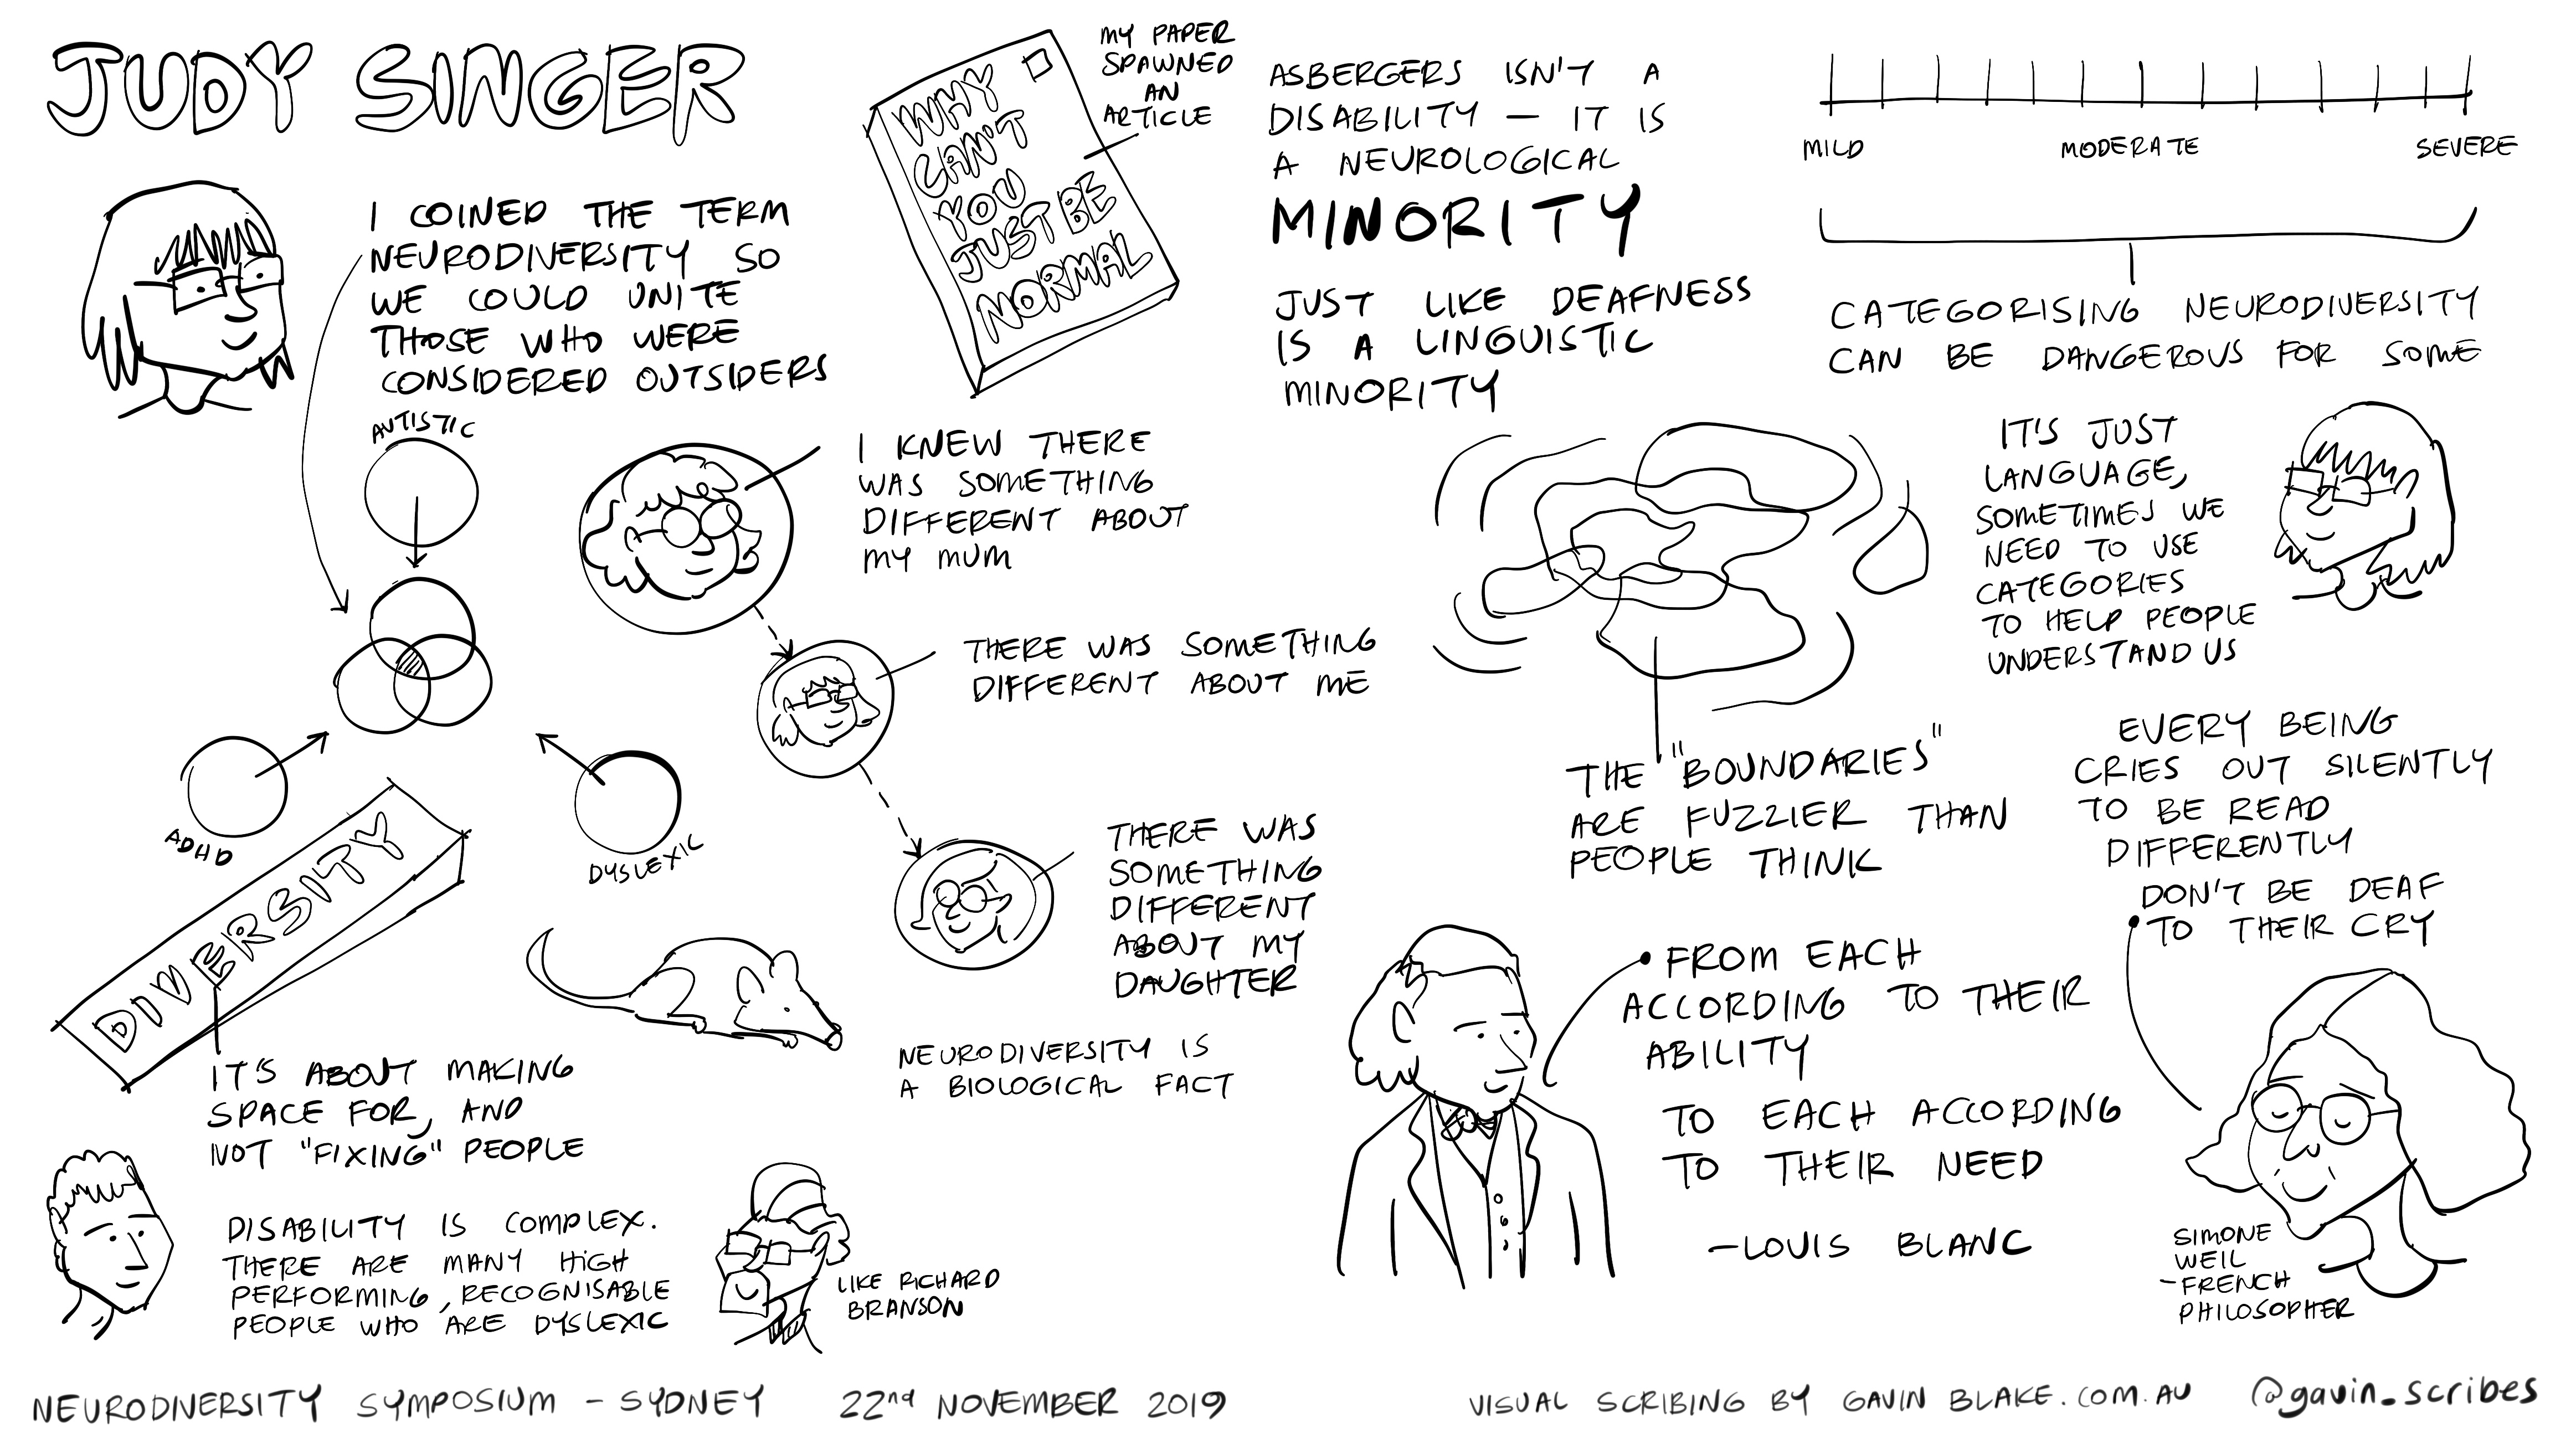 JUDY SINGER
I COINED THE TERM
NEURODIVERSITY SO
WE COULD UNITE
THOSE WHO WERE
CONSIDERED OUTSIDERS
AUTISTIC
ADHD
DYSLEXIC
WHY
CAN'T
YOU
JUST BE
NORMAL
MY PAPER
SPAWNED
AN
ARTICLE
I KNEW THERE
WAS SOMETHING
DIFFERENT ABOUT
MY MUM
THERE WAS SOMETHING
DIFFERENT ABOUT ME
THERE WAS
SOMETHING
DIFFERENT
ABOUT MY
DAUGHTER
NEURODIVERSITY IS
A BIOLOGICAL FACT
DIVERSITY
IT'S ABOUT MAKING
SPACE FOR, AND
NOT "FIXING" PEOPLE
DISABILITY IS COMPLEX.
THERE ARE MANY HIGH
PERFORMING, RECOGNISABLE
PEOPLE WHO ARE DYSLEXIC
LIKE RICHARD
BRANSON
ASBERGERS ISN'T A
DISABILITY — IT IS
A NEUROLOGICAL
MINORITY
JUST LIKE DEAFNESS
IS A LINGUISTIC
MINORITY
MILD MODERATE SEVERE
CATEGORISING NEURODIVERSITY
CAN BE DANGEROUS FOR SOME
IT'S JUST
LANGUAGE,
SOMETIMES WE
NEED TO USE
CATEGORIES
TO HELP PEOPLE
UNDERSTAND US
THE "BOUNDARIES"
ARE FUZZIER THAN
PEOPLE THINK
EVERY BEING
CRIES OUT SILENTLY
TO BE READ
DIFFERENTLY
DON'T BE DEAF
TO THEIR CRY
SIMONE
WEIL
-FRENCH
PHILOSOPHER
FROM EACH
ACCORDING TO THEIR
ABILITY
TO EACH ACCORDING
TO THEIR NEED
-LOUIS BLANC
NEURODIVERSITY SYMPOSIUM - SYDNEY 22nd NOVEMBER 2019
VISUAL SCRIBING BY GAVIN BLAKE.COM.AU @gavin_scribes